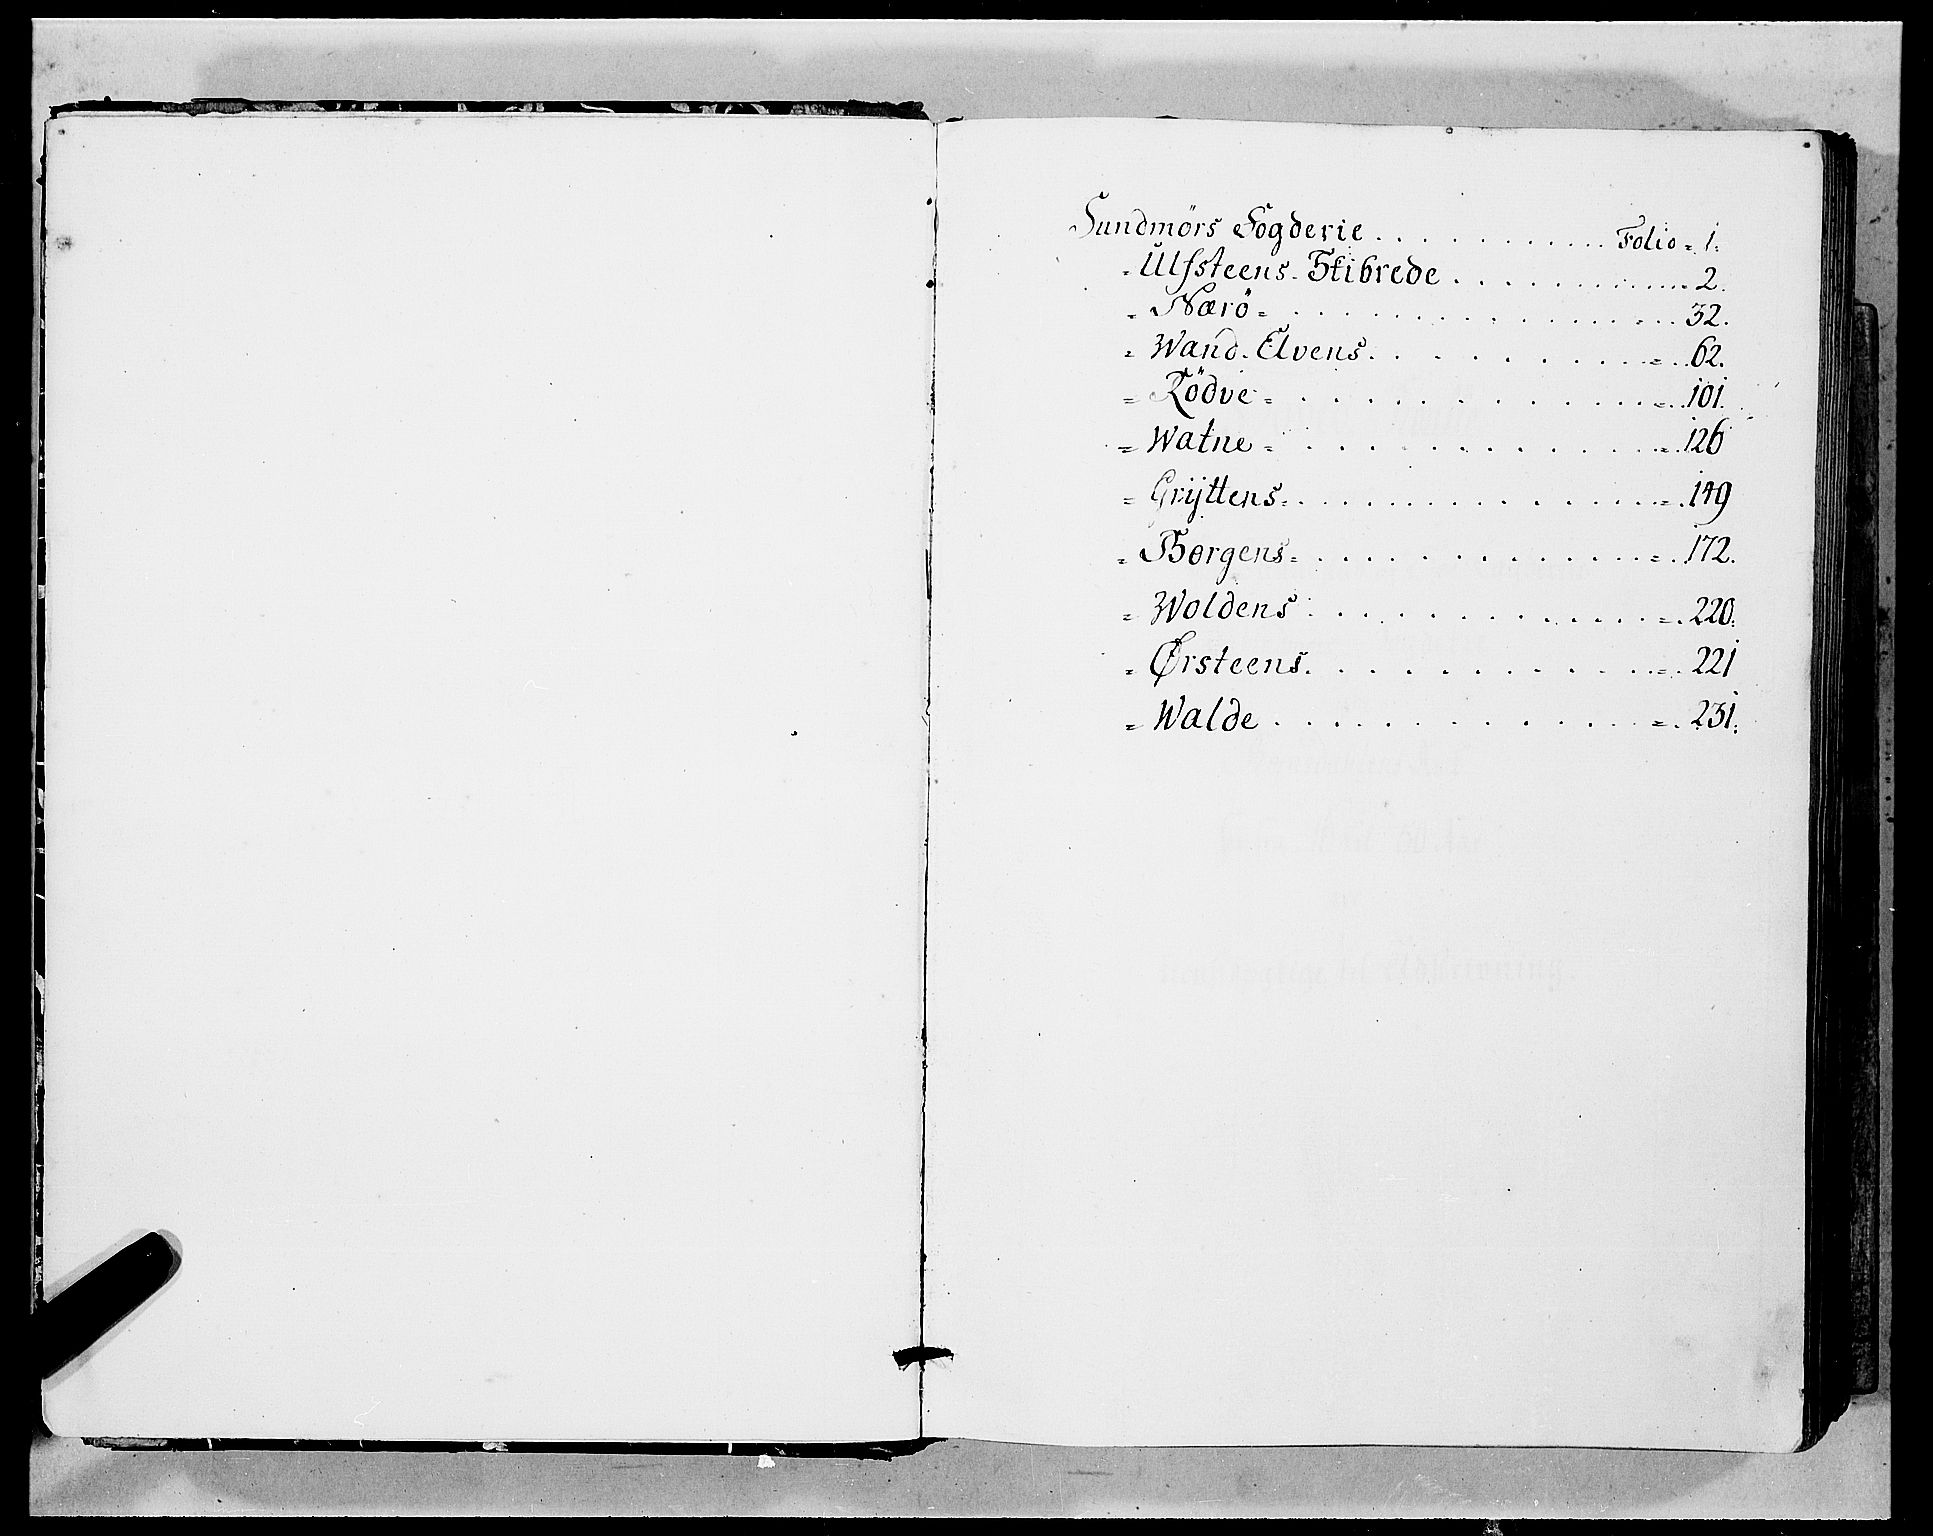 Sundmörs Fogderie . . . . . . . . . . . . Folio = 1.
= Ulfsteens Skibrede . . . . . . . . . . . . 2.
= Nærö = . . . . . . . . . . . . = . . 32.
= Wand-Elvens . . . . . . . . . = . . 62.
= Rödve = . . . . . . . . . . . . = . . 101.
= Watne = . . . . . . . . . . . . = . . 126
= Grijttens = . . . . . . . . . . . . = . 149
= Borgens = . . . . . . . . . . . . = . . 172.
= Woldens . . . . . . . . . . . . = . 220.
= Ørsteens . . . . . . . . . . . = . 221
= Walde . . . . . . . . . . . . = . 231.